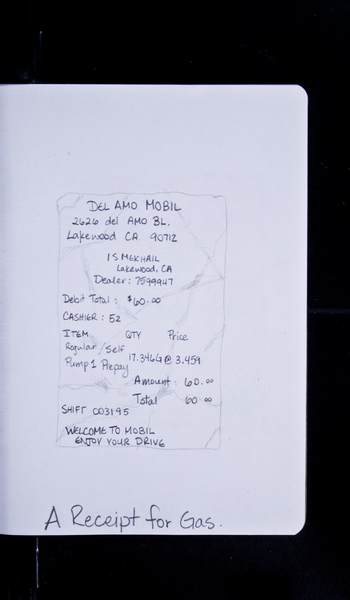 DEL AMO MOBIL
2626 del AMO BL.
Lakewood CA 90712
IS MEKHAIL
Lakewood, CA
Dealer: 7599947
Debit Total: $60.00
CASHIER: 52
ITEM QTY Price
Regular/Self
Pump 1 Prepay 17.346G @ 3.459
Amount: 60.00
Total 60.00
SHIFT 003195
WELCOME TO MOBIL
ENJOY YOUR DRIVE
A Receipt for Gas.